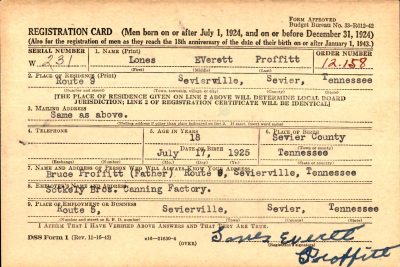 FORM APPROVED
Budget Bureau No. 33-R012-42
REGISTRATION CARD (Men born on or after July 1, 1924, and on or before December 31, 1924)
(Also for the registration of men as they reach the 18th anniversary of the date of their birth on or after January 1, 1943.)
SERIAL NUMBER
1. NAME (Print)
ORDER NUMBER
W 231
Lones EVerett Proffitt
12.158
(First) (Middle) (Last)
2. PLACE OF RESIDENCE (Print)
Route 9 Sevierville, Sevier, Tennessee
(Number and street) (Town, township, village, or city) (County) (State)
[THE PLACE OF RESIDENCE GIVEN ON LINE 2 ABOVE WILL DETERMINE LOCAL BOARD
JURISDICTION; LINE 2 OF REGISTRATION CERTIFICATE WILL BE IDENTICAL]
3. MAILING ADDRESS
Same as above.
(Mailing address if other than place indicated on line 2. If same, insert word same)
4. TELEPHONE
5. AGE IN YEARS
6. PLACE OF BIRTH
18
Sevier County
DATE OF BIRTH
(Town or county)
July 17, 1925
Tennessee
(Exchange) (Number) (Mo.) (Day) (Yr.) (State or country)
7. NAME AND ADDRESS OF PERSON WHO WILL ALWAYS KNOW YOUR ADDRESS
Bruce Proffitt (Father) Route 9, Sevierville, Tennessee
8. EMPLOYER'S NAME AND ADDRESS
Canning Factory.
9. PLACE OF EMPLOYMENT OR BUSINESS
Route 5, Sevierville, Sevier, Tennessee
(Number and street or R. F. D. number) (Town) (County) (State)
I AFFIRM THAT I HAVE VERIFIED ABOVE ANSWERS AND THAT THEY ARE TRUE.
DSS Form 1 (Rev. 11-16-42) (OVER)
Lones Everett
Proffitt